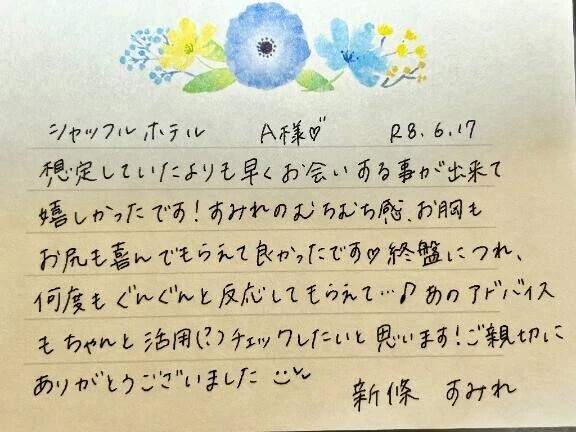 シャッフルホテル A様♡ R8.6.17
想定していたよりも早くお会いする事が出来て
嬉しかったです！すみれのむちむち感、お胸も
お尻も喜んでもらえて良かったです♡終盤につれ、
何度もぐんぐんと反応してもらえて…♪あのアドバイス
もちゃんと活用(?)チェックしたいと思います！ご親切に
ありがとうございました
新條 すみれ